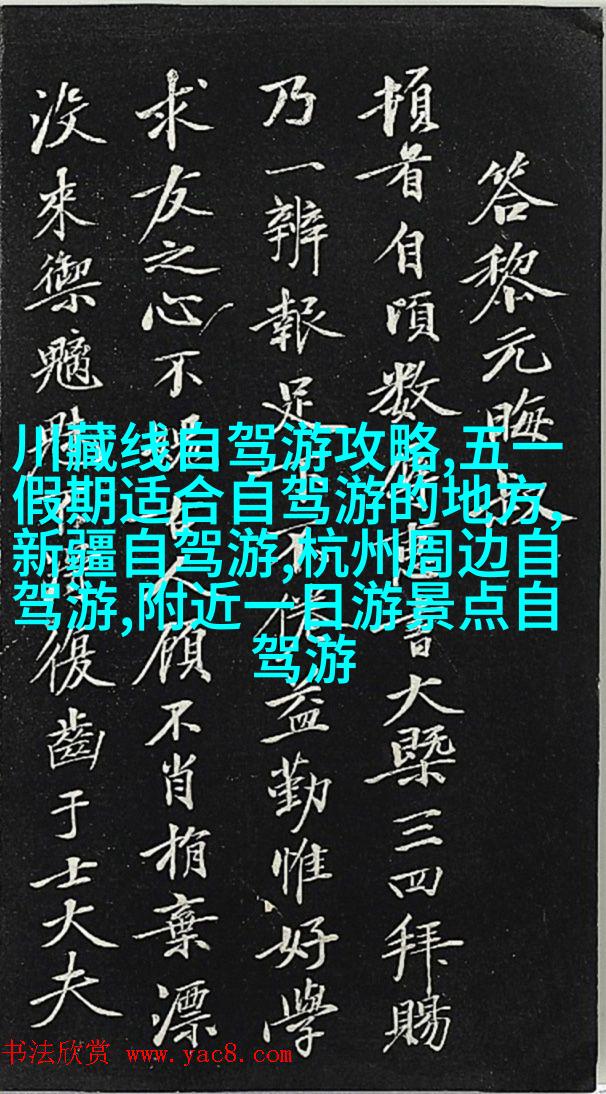 答黎元晦
頓首自頃数
大槩三四拜賜
乃一辨報足
不
益勤惟好學
求友之心不
人顧不肖捐棄漂
没来禦魑
復齒于士大夫
川藏线自驾游攻略,五一
假期适合自驾游的地方,
新疆自驾游,杭州周边自
驾游,附近一日游景点自
驾游
书法欣赏 www.yac8.com